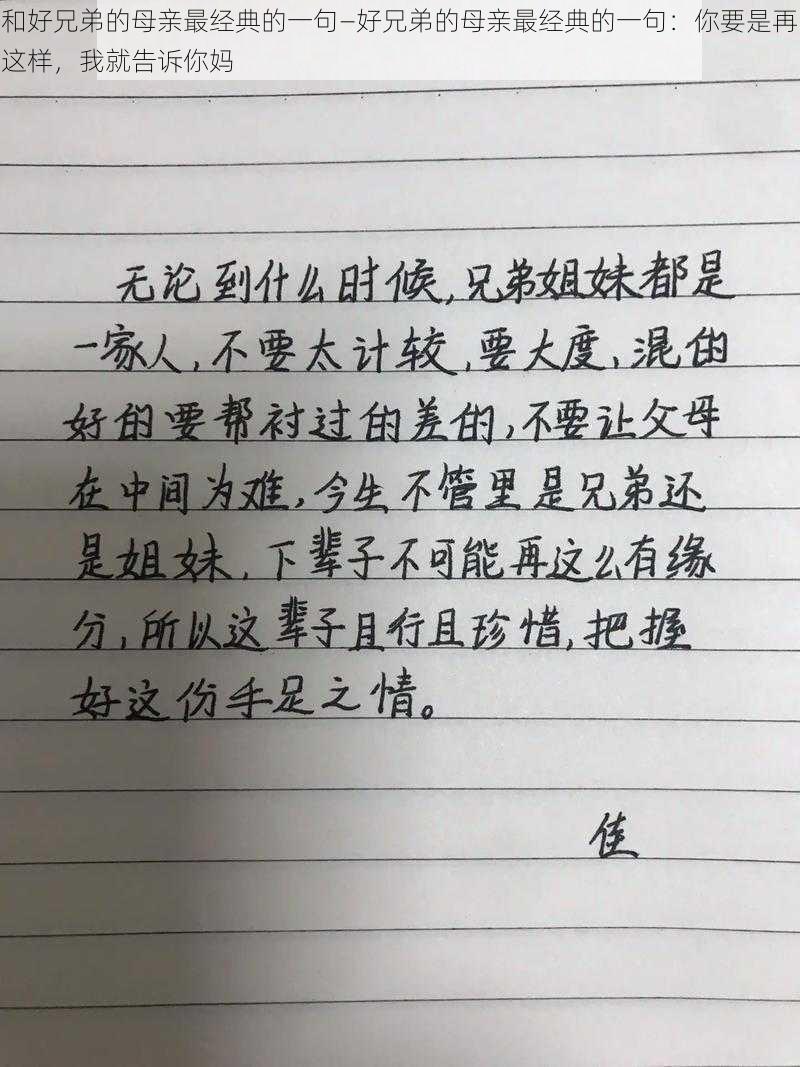 和好兄弟的母亲最经典的一句—好兄弟的母亲最经典的一句：你要是再
这样，我就告诉你妈
无论到什么时候,兄弟姐妹都是
一家人,不要太计较,要大度,混的
好的要帮衬过的差的,不要让父母
在中间为难,今生不管里是兄弟还
是姐妹,下辈子不可能再这么有缘
分,所以这辈子且行且珍惜,把握
好这份手足之情。
佳